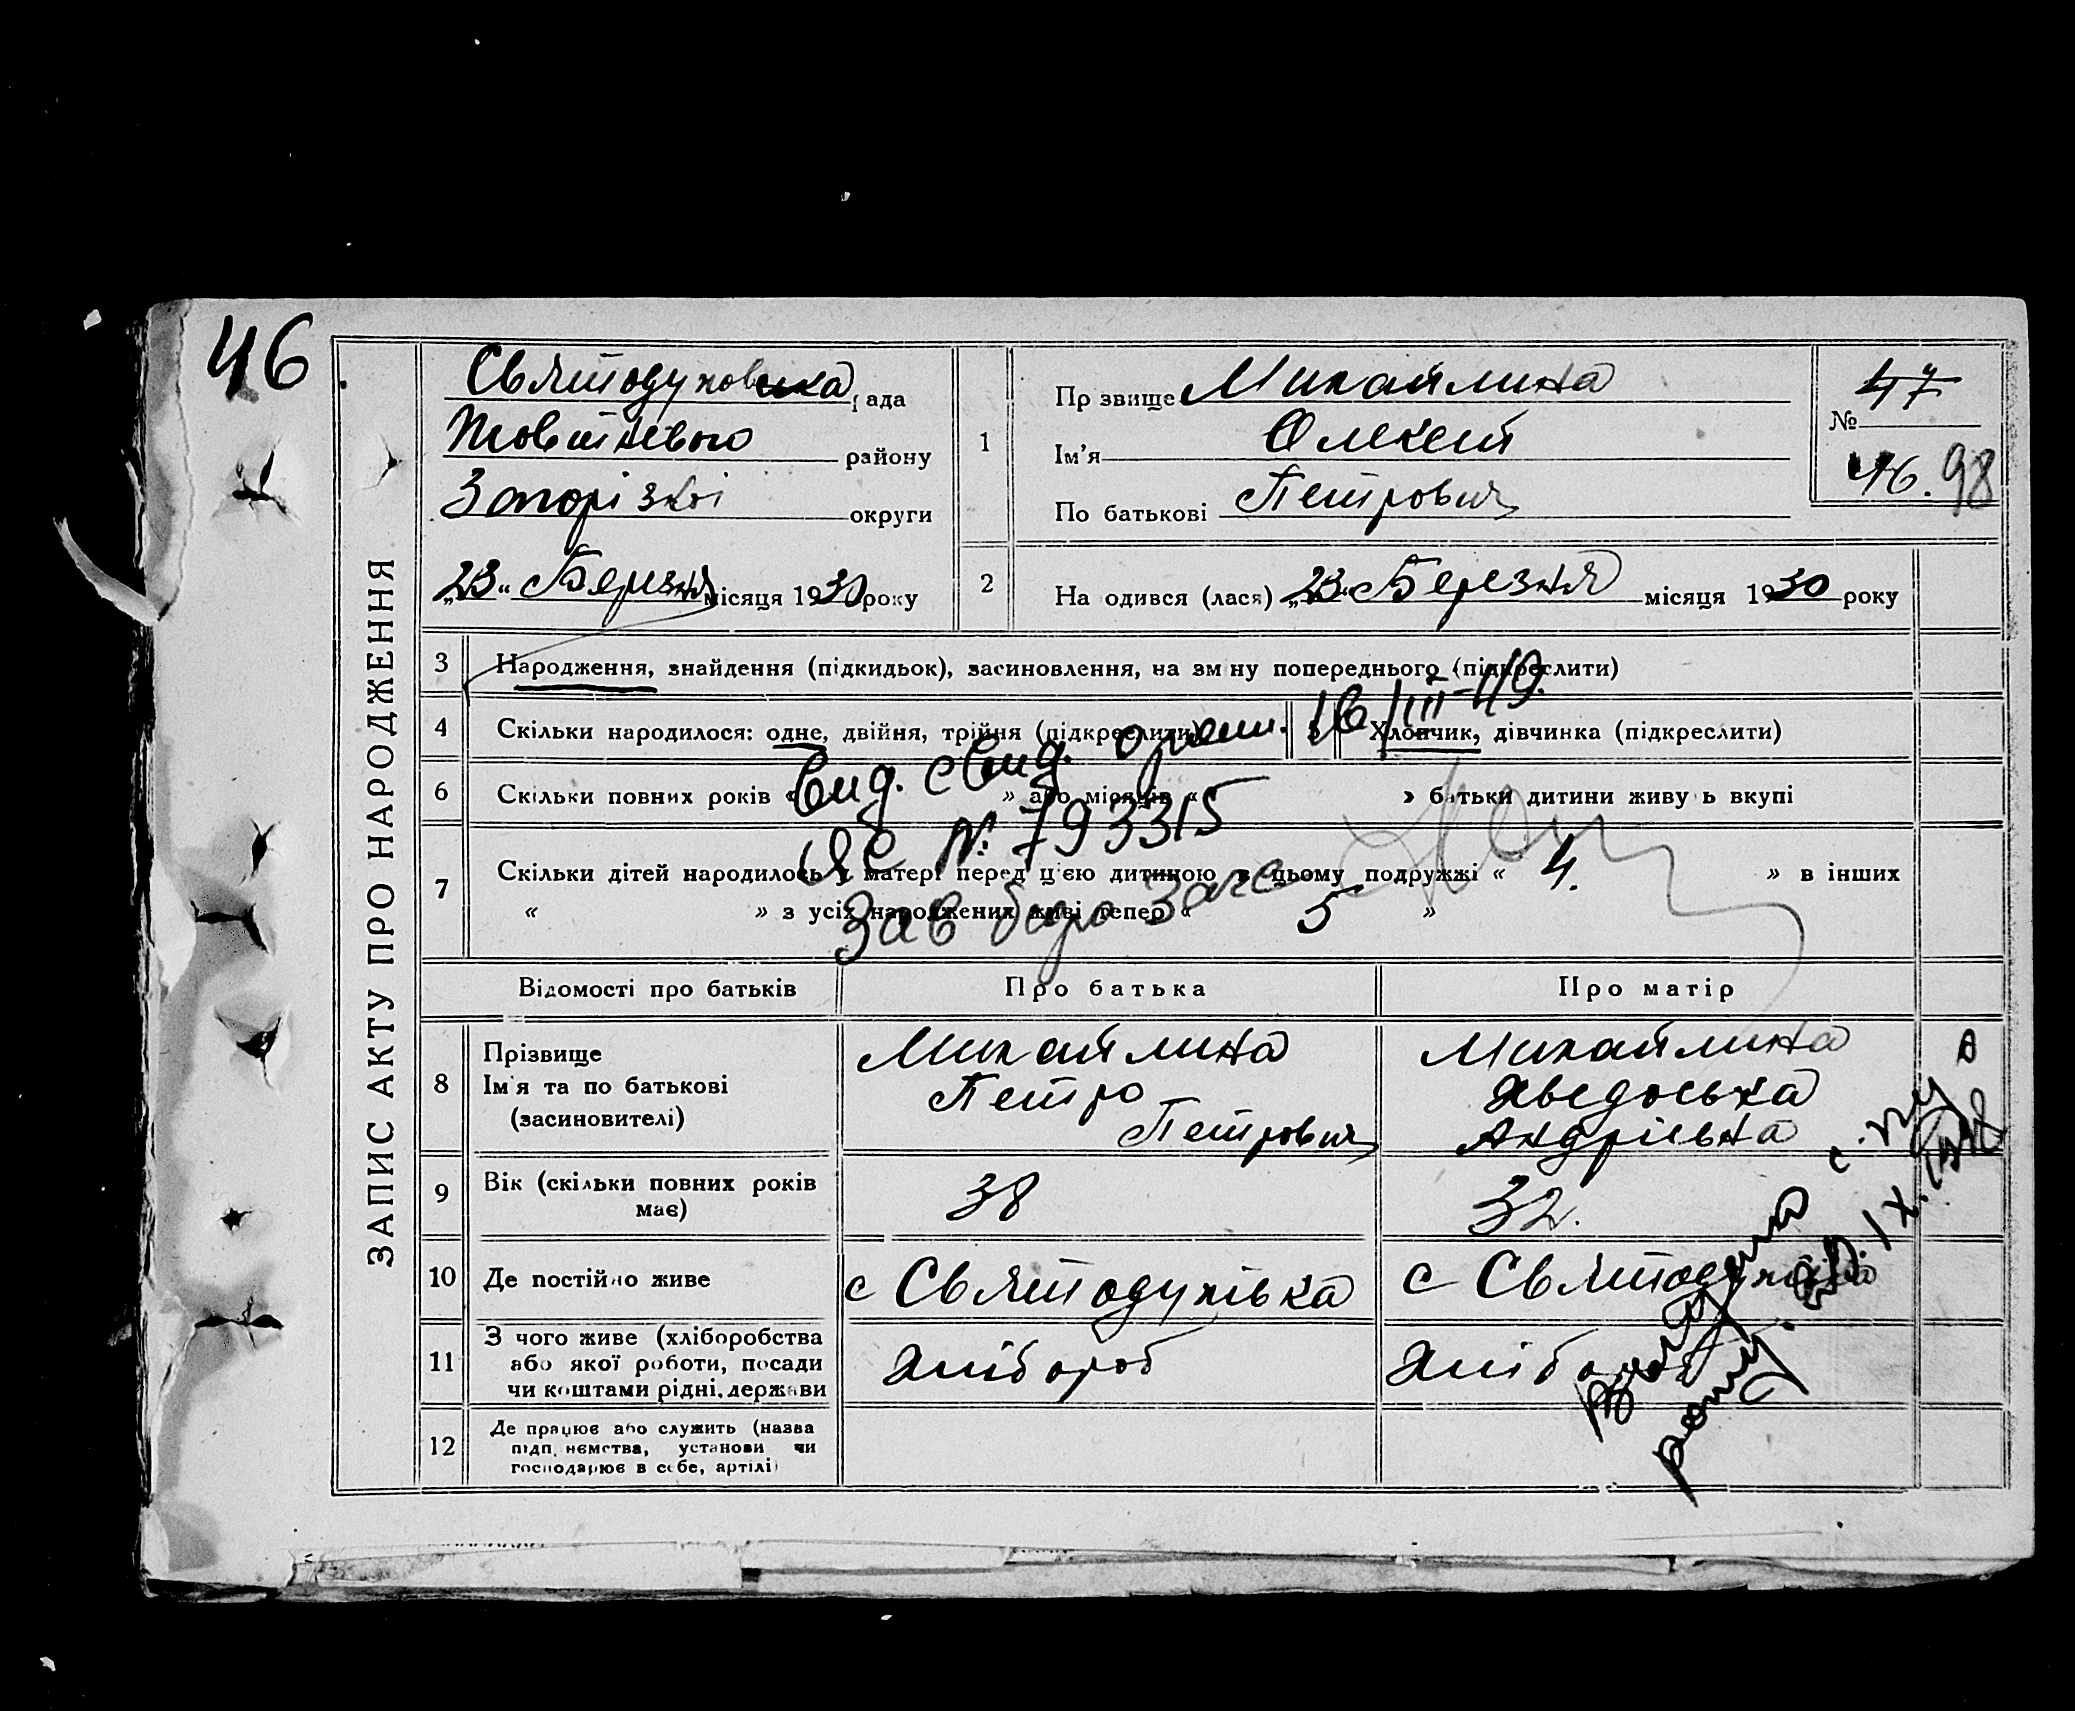 46.
ЗАПИС АКТУ ПРО НАРОДЖЕННЯ
Святодуховська рада
Жовтневого району
Запорізкої округи
„23“ Березня місяця 1930 року
1
Пр звище Михайлина
Ім'я Олексій
По батькові Петрович
№ 47
46. 98
2
На одився (лася) „23“ Березня місяця 1930 року
3 Народження, знайдення (підкидьок), засиновлення, на зм ну попереднього (підкреслити)
4 Скільки народилося: одне, двійня, трійня (підкреслити) 5 Хлопчик, дівчинка (підкреслити)
Вид. свид. 16/III-49.
6 Скільки повних років « » або місяців « » батьки дитини живуть вкупі
ЯС № 793315
7 Скільки дітей народилось у матері перед ц'єю дитиною в цьому подружжі « 4. » в інших
« » з усіх народжених живі тепер « 5 »
Зав бюро Загс
Відомості про батьків Про батька Про матір
8 Прізвище
Ім'я та по батькові
(засиновителі)
Михайлина
Петро
Петрович
Михайлина
Хведоська
Андріївна
9 Вік (скільки повних років
має)
38
32.
10 Де постійно живе
с Святодухівка
с Святодухівка
11 З чого живе (хліборобства
або якої роботи, посади
чи коштами рідні, держави
Хлібороб
Хлібороб
12 Де працює або служить (назва
підп. ємства, установи чи
господарює в себе, артілі)